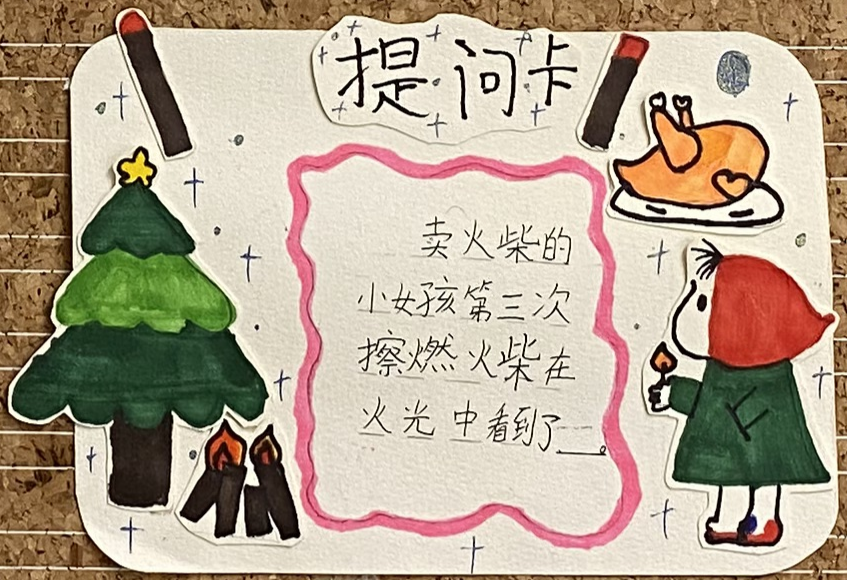 提问卡
卖火柴的
小女孩第三次
擦燃火柴在
火光中看到了__。